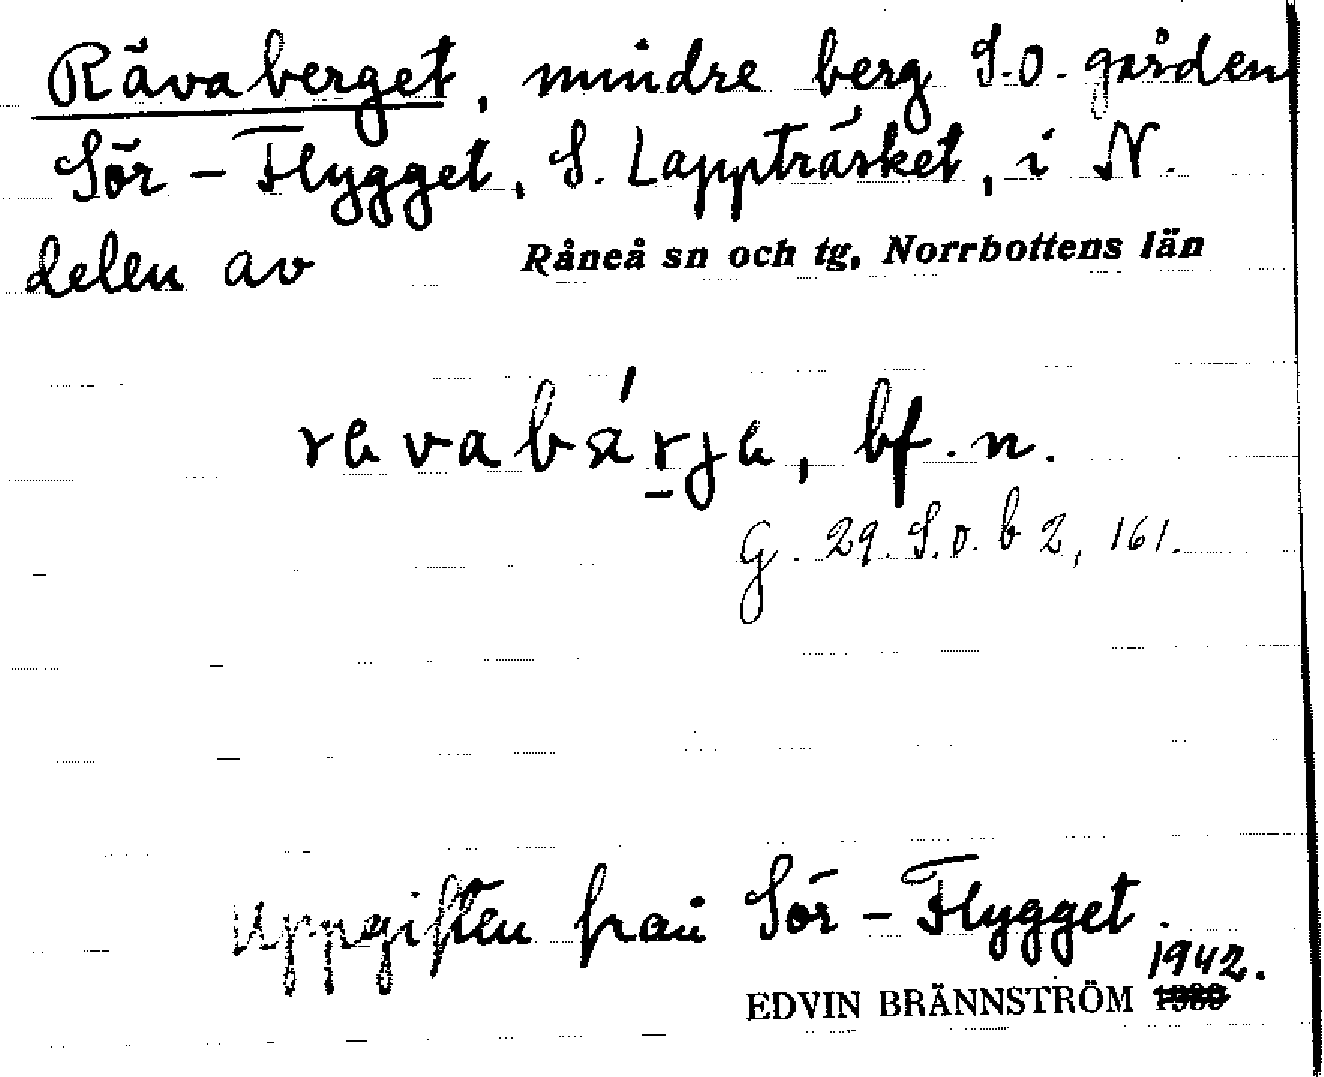 Rävaberget, mindre berg S.O. gården
Sör-Flygget, S. Lappträsket, i N.
delen av Råneå sn och tg, Norrbottens län
bf. n.
G. 29. S.o. b 2, 161.
Uppgiften från Sör-Flygget.
1942.
EDVIN BRÄNNSTRÖM